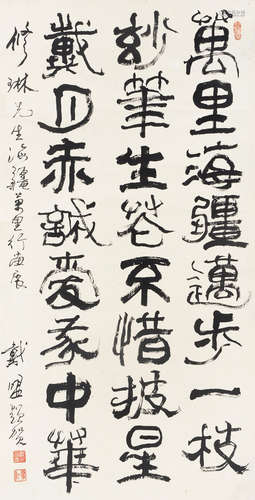 萬里海疆邁步一枝
妙筆生花不惜披星
戴月赤誠愛我中華
修琳先生海疆萬里行畫展
戴明賢賀